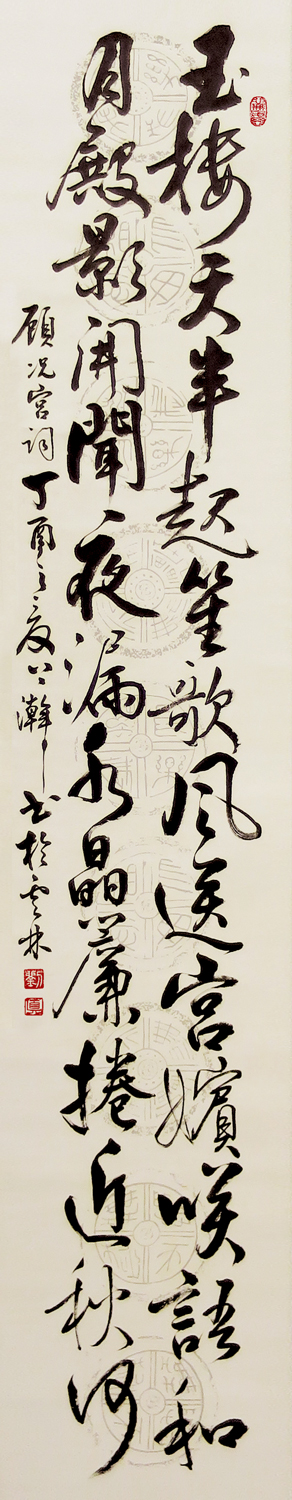 玉樓天半起笙歌風送宮嬪咲語和
月殿影開聞夜漏水晶簾捲近秋河
顧況宮詞丁酉之夏上瀚書於雲林
劉